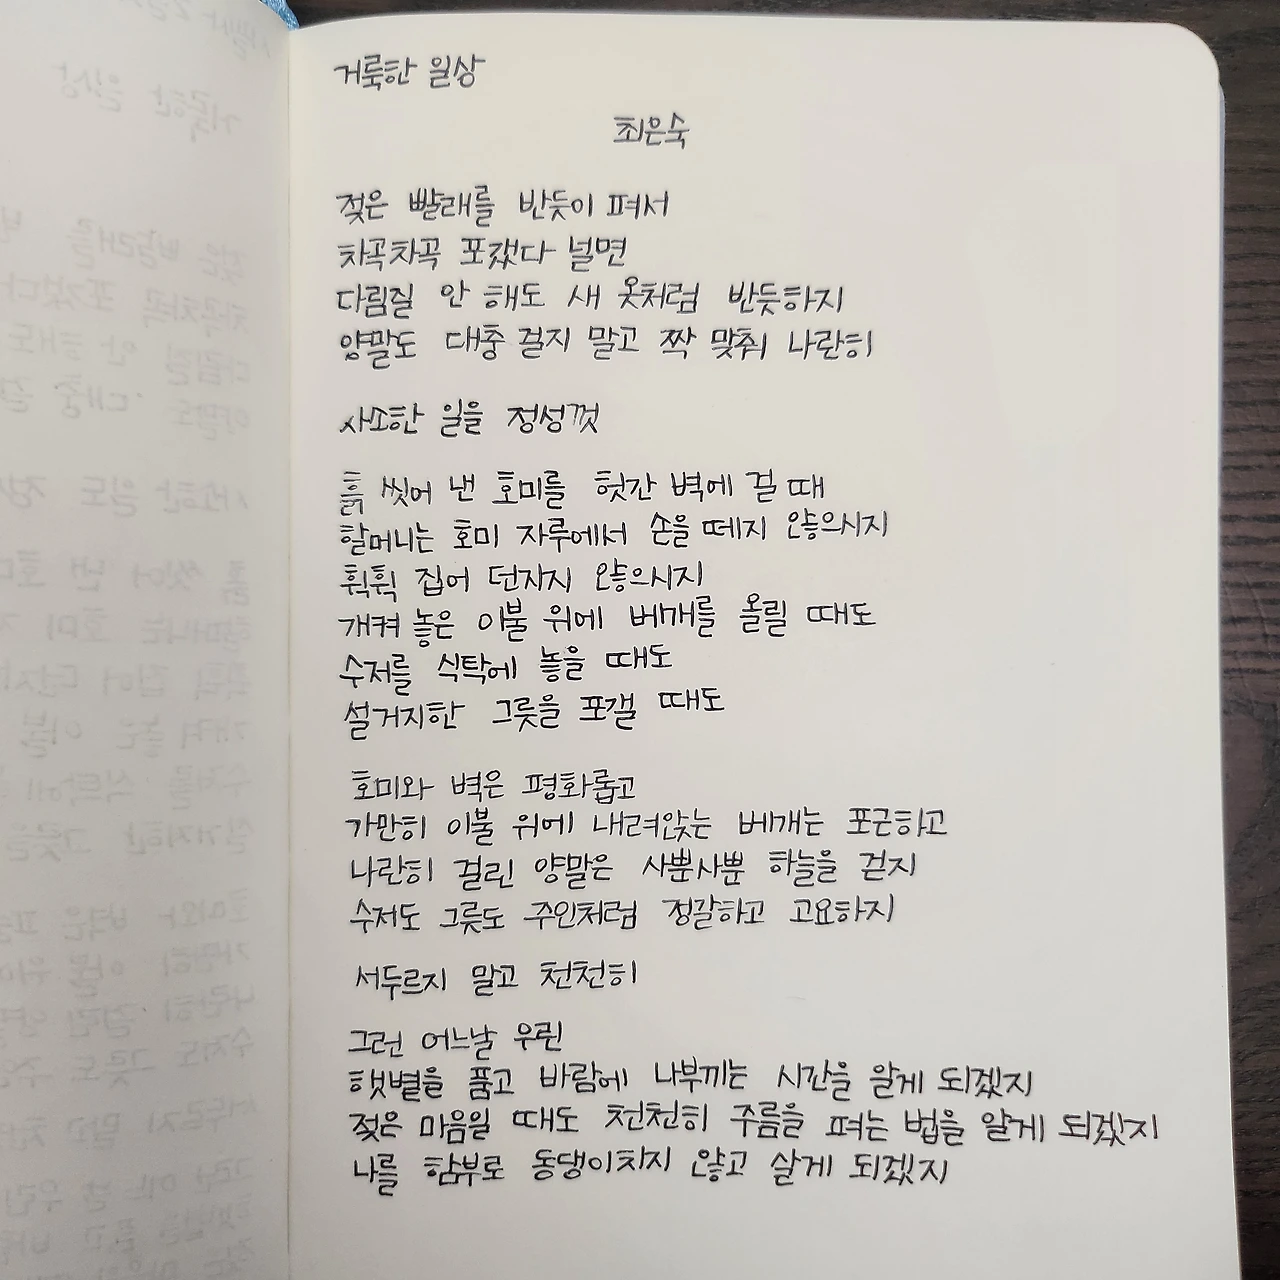 거룩한 일상
최은숙
젖은 빨래를 반듯이 펴서
차곡차곡 포갰다 널면
다림질 안 해도 새 옷처럼 반듯하지
양말도 대충 걸지 말고 짝 맞춰 나란히
사소한 일을 정성껏
흙 씻어 낸 호미를 헛간 벽에 걸 때
할머니는 호미 자루에서 손을 떼지 않으시지
휙휙 집어 던지지 않으시지
개켜 놓은 이불 위에 베개를 올릴 때도
수저를 식탁에 놓을 때도
설거지한 그릇을 포갤 때도
호미와 벽은 평화롭고
가만히 이불 위에 내려앉는 베개는 포근하고
나란히 걸린 양말은 사뿐사뿐 하늘을 걷지
수저도 그릇도 주인처럼 정갈하고 고요하지
서두르지 말고 천천히
그런 어느날 우린
햇볕을 품고 바람에 나부끼는 시간을 알게 되겠지
젖은 마음일 때도 천천히 주름을 펴는 법을 알게 되겠지
나를 함부로 동댕이치지 않고 살게 되겠지